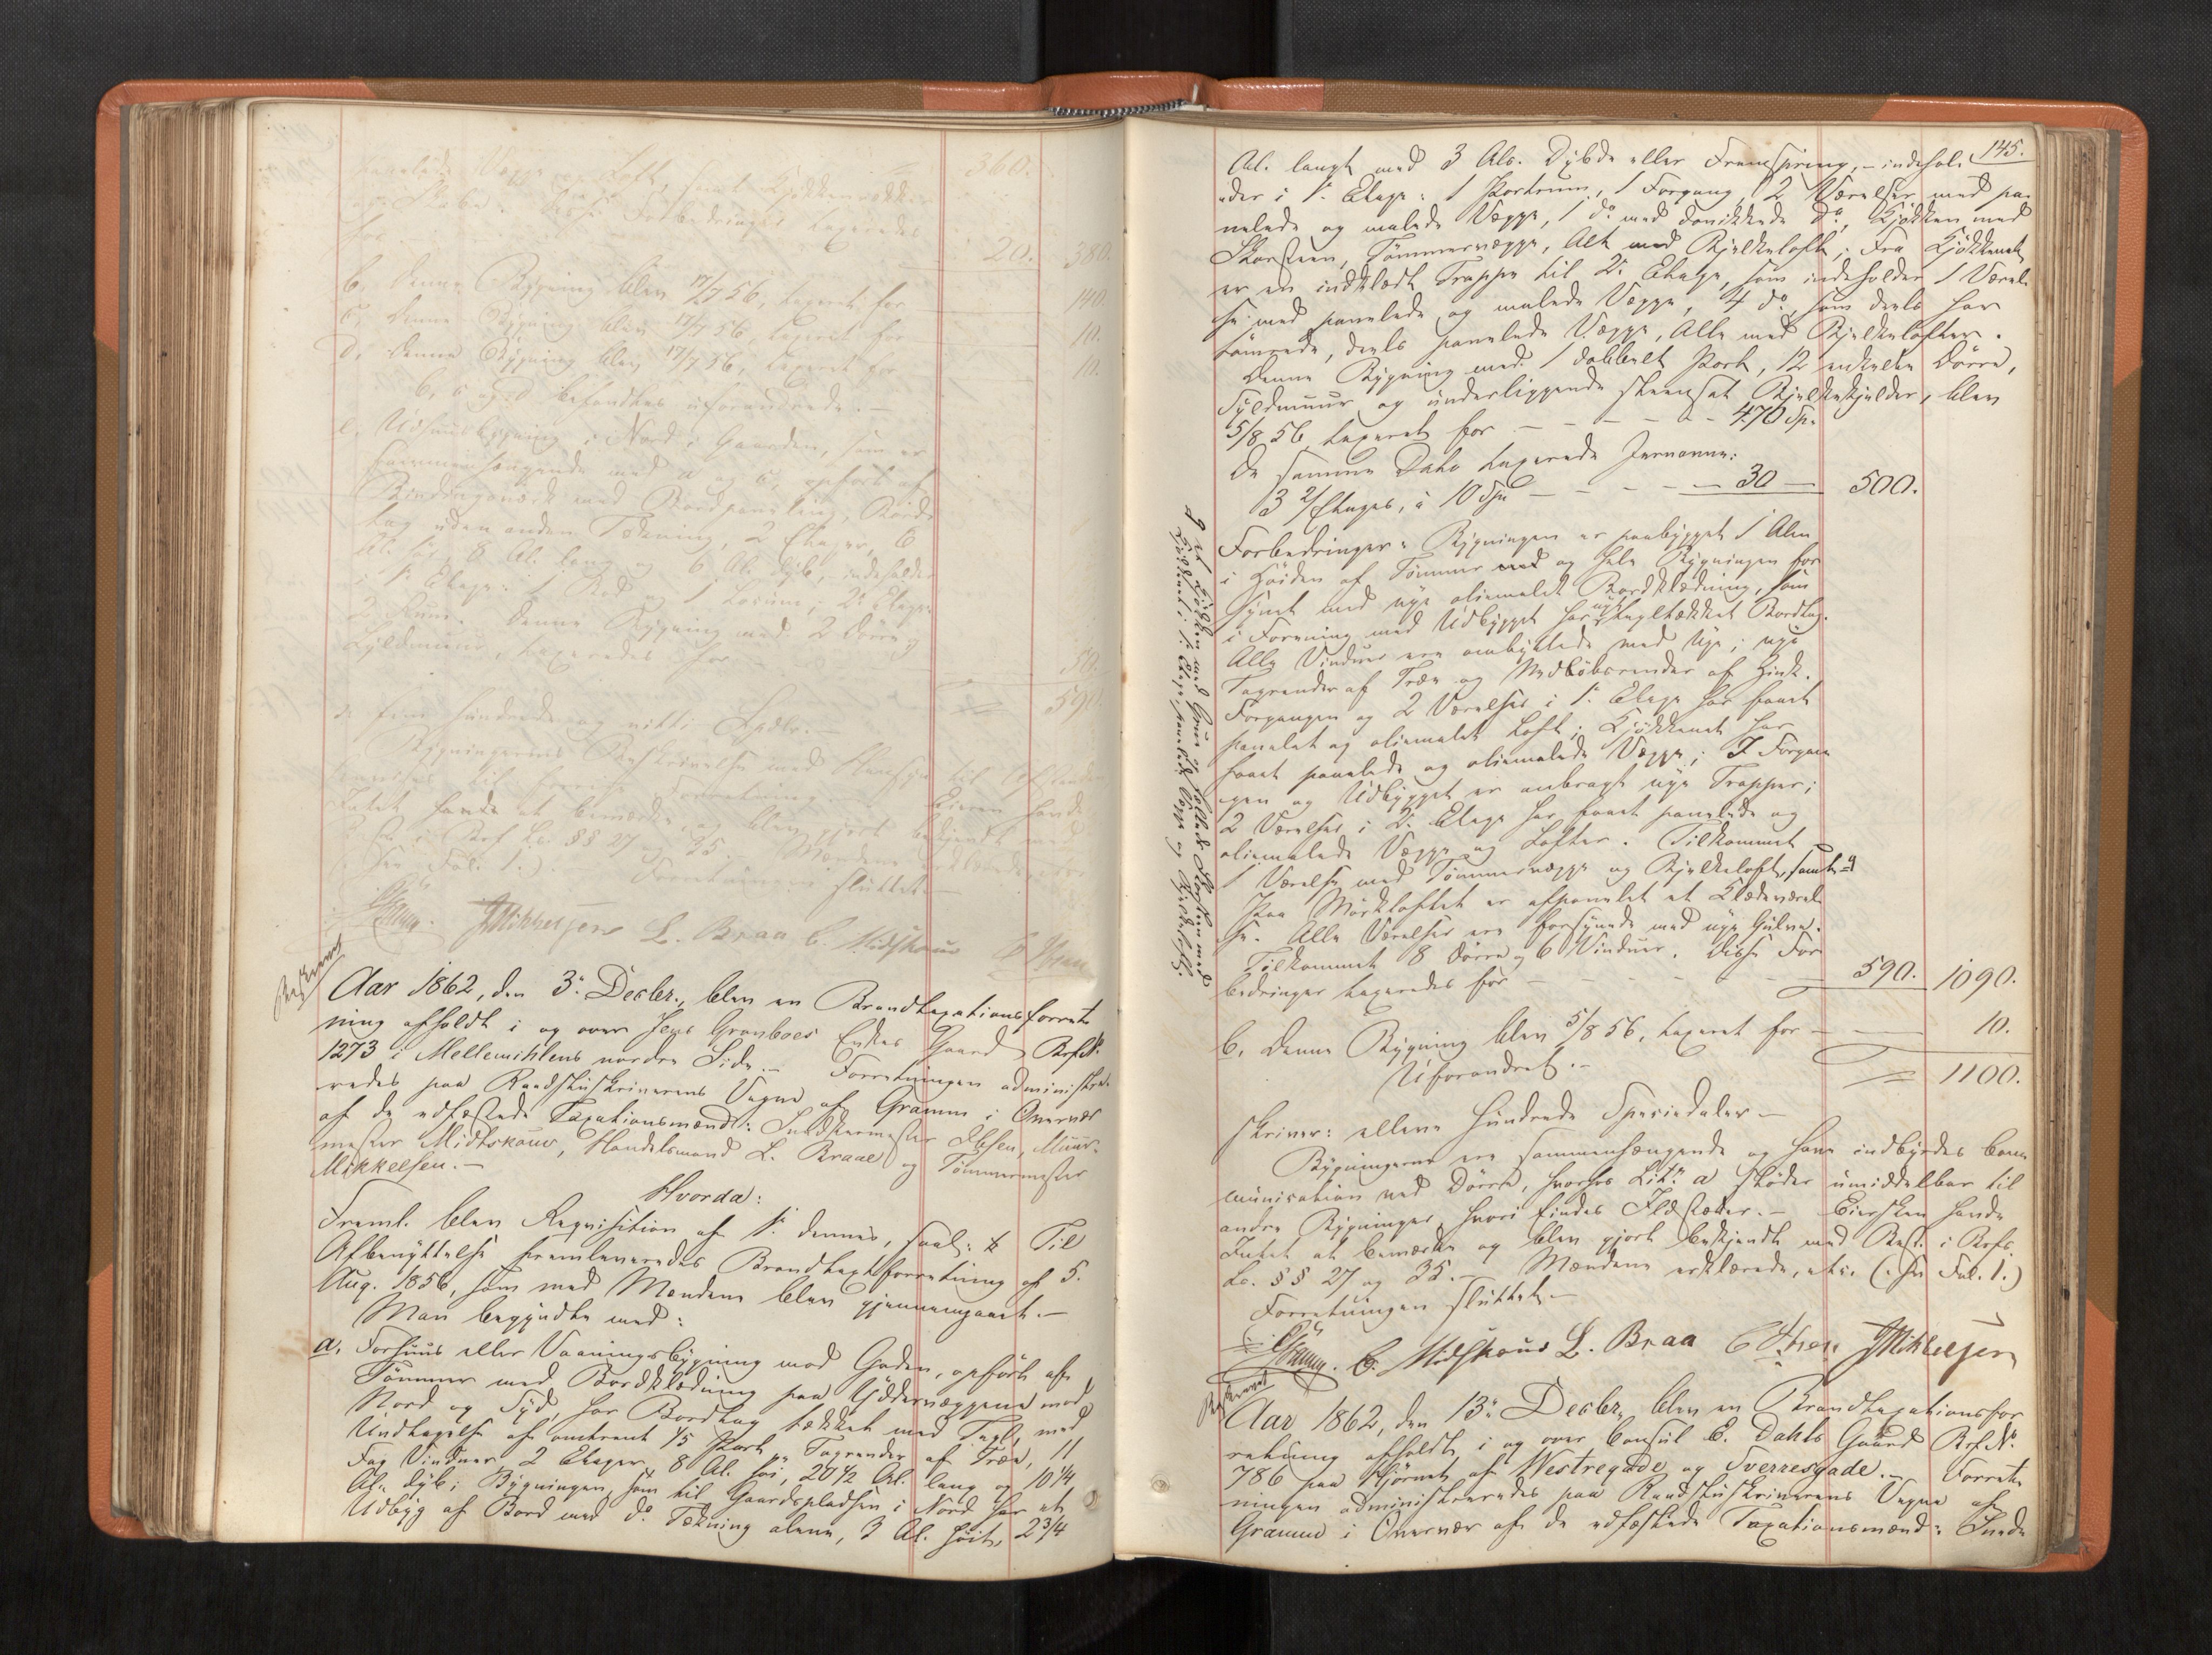 panelede Vægge og Loft, samt Kjøkkenrækker 360.
og Skabe. Disse Forbedringer taxeredes
for 20. 380.
b, denne Bygning blev 17/7 56, taxeret for 140.
c, denne Bygning blev 17/7 56, taxeret for 10.
d, denne Bygning blev 17/7 56, taxeret for 10.
b, c og d befandtes uforandrede.-
e, Udhuusbygning i Nord i Gaarden, som er
sammenhængende med a og c, opført af
Bindingsværk med Bordpaneling, Bord-
tag uden anden Tækning, 2 Etager, 6
Al. høi, 8 Al. lang og 6 Al. dyb, indeholder
i 1ste Etage: 1 Bod og 1 Locum, 2den Etage
2 Rum. Denne Bygning med 2 Døre og
Syldmuur, taxeredes for 50.
590.
er fem hundrede og nitti Spdlr.-
Bygningernes Beskrivelse med Hensyn til Afstanden
henvises til forrige Forretning. Eieren havde
Intet havde at bemærke, og blev gjort bekjendt med
Best. i Brf. Lov §§ 27 og 35. Mændene erklærede etc.
(: See Fol. 1.). Forretningen sluttet.-
Gramm. J Mikkelsen L. Braa C. Midtskouv E Ibsen
Beskreven
Aar 1862, den 3. Decbr., blev en Brandtaxationsforret-
ning afholdt i og over Jens Gronboes Enkes Gaard, Brf. No.
1273 i Mellemihlens nordre Side.- Forretningen administre-
redes paa Raadstuskriverens Vegne af Gramm i Overvær
af de edfæstede Taxationsmænd: Snedkermester Ibsen, Muur-
mester Midtskouv, Handelsmand L. Braae og Tømmermester
Mikkelsen.-
Hvorda:
Freml. blev Requisition af 1ste dennes, saal: Til
Afbenyttelse fremleveredes Brandtaxtforretning af 5.
Aug. 1856, som med Mændene blev gjennemgaaet.-
Man begyndte med:
a. Forhuus eller Vaaningsbygning mod Gaden, opført af
Tømmer med Bordklædning paa Yddervæggene mod
Nord og Syd, har Bordtag tækket med Tegl, med
Undtagelse af omtrent 1/5 Part, Tagrender af Træ, 11
Fag Vinduer, 2 Etager, 8 Al. høi, 20 1/2 Al. lang og 10 1/4
Al. dyb; Bygningen, som til Gaardspladsen i Nord har et
Udbyg af Bord med do Tækning alene, 3 Al. høit, 2 3/4
145.
Al. langt med 3 Als. Dybde eller Fremspring,- indehol-
der i 1ste Etage: 1 Portrum, 1 Forgang, 2 Værelser med pa-
nelede og malede Vægge, 1 do med donikkede do, Kjøkken med
Skorsteen, Tømmervægge, Alt med Bjelkeloft; fra Kjøkkenet
er en indklædt Trappe til 2den Etage, som indeholder 1 Værel-
se med panelede og malede Vægge, 4 do som deels har
tømrede, deels panelede Vægge, Alle med Bjelkelofter.
Denne Bygning med 1 dobbelt Port, 12 enkelte Døre,
Syldmuur og underliggende steensat Bjelkekjelder, blev
5/8 56 taxeret for - - - - 470 Sp.
De samme Dato taxerede Jernovne:
3 2/Etages, à 10 Spd. - - - - 30 — 500.
Forbedringer: Bygningen er paabygget 1 Alen
i Høiden af Tømmer med og hele Bygningen for-
synet med nye oliemalet Bordklædning, som
i Forening med Udbygget har nyt tegltækket Bordtag.
Alle Vinduer ere ombyttede med Nye; nye
Tagrender af Træ og Nedløbsrender af Zink.
Forgangen og 2 Værelser i 1ste Etage har faaet
panelet og oliemalet Loft; Kjøkkenet har
faaet panelede og oliemalede Vægge; I Forgan-
gen og Udbygget er anbragt nye Trapper;
2 Værelser i 2den Etage har faaet panelede og
oliemalede Vægge og Lofter. Tilkommet
1 Værelse med Tømmervægge og Bjelkeloft, samt
Paa Mørkloftet er afpanelet et Klædeværel-
se. Alle Værelser ere forsynede med nye Gulve.
Tilkommet 8 Døre og 6 Vinduer. Disse For-
bedringer taxeredes for - - - 590. 1090.
b, denne Bygning blev 5/8 56, taxeret for - 10.
Uforandret.- 1100.
skriver: elleve hundrede Speciedaler-
Bygningerne ere sammenhængende og have indbyrdes Com-
munication ved Døre, hvorhos Litr. a støder umiddelbar til
andre Bygninger, hvori findes Ildsteder.- Eiersken havde
Intet at bemærke og blev gjort bekjendt med Best. i Brfs.
Lov §§ 27 og 35.- Mændene erklærede, etc. (: See Fol. 1.)
Forretningen sluttet.-
Gramm. C. Midtskouv L. Braa E Ibsen J Mikkelsen
Beskrevet
Aar 1862, den 13. Decbr., blev en Brandtaxationsfor-
retning afholdt i og over Consul C. Dahls Gaard Brf. No.
786 paa Hjørnet af Westregade og Sverresgade.- Forret-
ningen administreredes paa Raadstuskriverens Vegne af
Gramm i Overvær af de edfæstede Taxationsmænd: Sned-
et Kjøkken med Gruve og fælleds Skorsteen med
Kjøkkenet i 1ste Etage, panelede Vægge og Bjelkeloft.